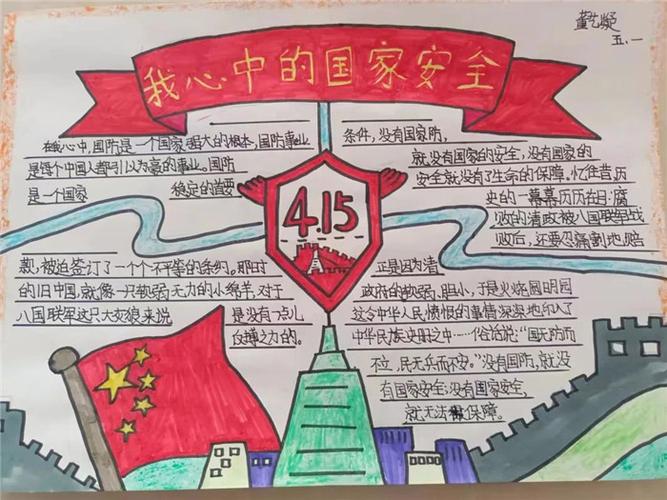 五.一
我心中的国家安全
在我心中,国防是一个国家强大的根本,国防事业
是每个中国人都引以为豪的事业。国防
是一个国家 稳定的首要
条件,没有国家防,
就没有国家的安全,没有国家的
安全就没有了生命的保障。忆往昔,历
史的一幕幕历历在目:腐
败的清政被八国联军战
败后,还要忍痛割地、赔
4.15
款,被迫签订了一个个不平等的条约。那时
的旧中国,就像一只软弱无力的小绵羊,对于
八国联军这只大灰狼来说
是没有一点儿
反搏之力的。
正是因为清
政府的软弱、胆小,于是火烧圆明园
这令中华人民愤恨的事情深深地印入了
中华民族史册之中…俗话说:“国无防而
不立,民无兵而不安。”没有国防,就没
有国家安全;没有国家安全,
就无法保障。